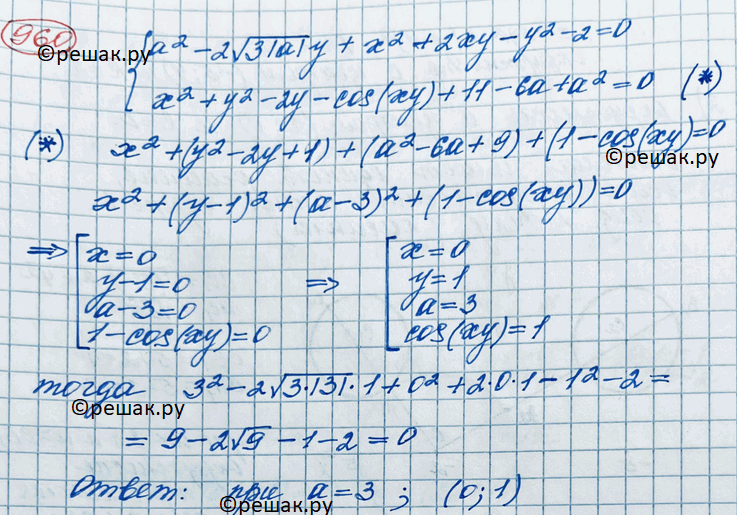 960 a² - 2√3|a| y + x² + 2xy - y² - 2 = 0
©решак.ру
x² + y² - 2y - cos(xy) + 11 - 6a + a² = 0 (*)
(*) x² + (y² - 2y + 1) + (a² - 6a + 9) + (1 - cos(xy) = 0
©решак.ру
x² + (y - 1)² + (a - 3)² + (1 - cos(xy)) = 0
⇒ [ x = 0 ⇒ [ x = 0
y - 1 = 0 y = 1
a - 3 = 0 a = 3
1 - cos(xy) = 0 cos(xy) = 1
тогда 3² - 2√3·|3| · 1 + 0² + 2·0·1 - 1² - 2 =
©решак.ру
= 9 - 2√9 - 1 - 2 = 0
Ответ: при a = 3 ; (0; 1)
©решак.ру